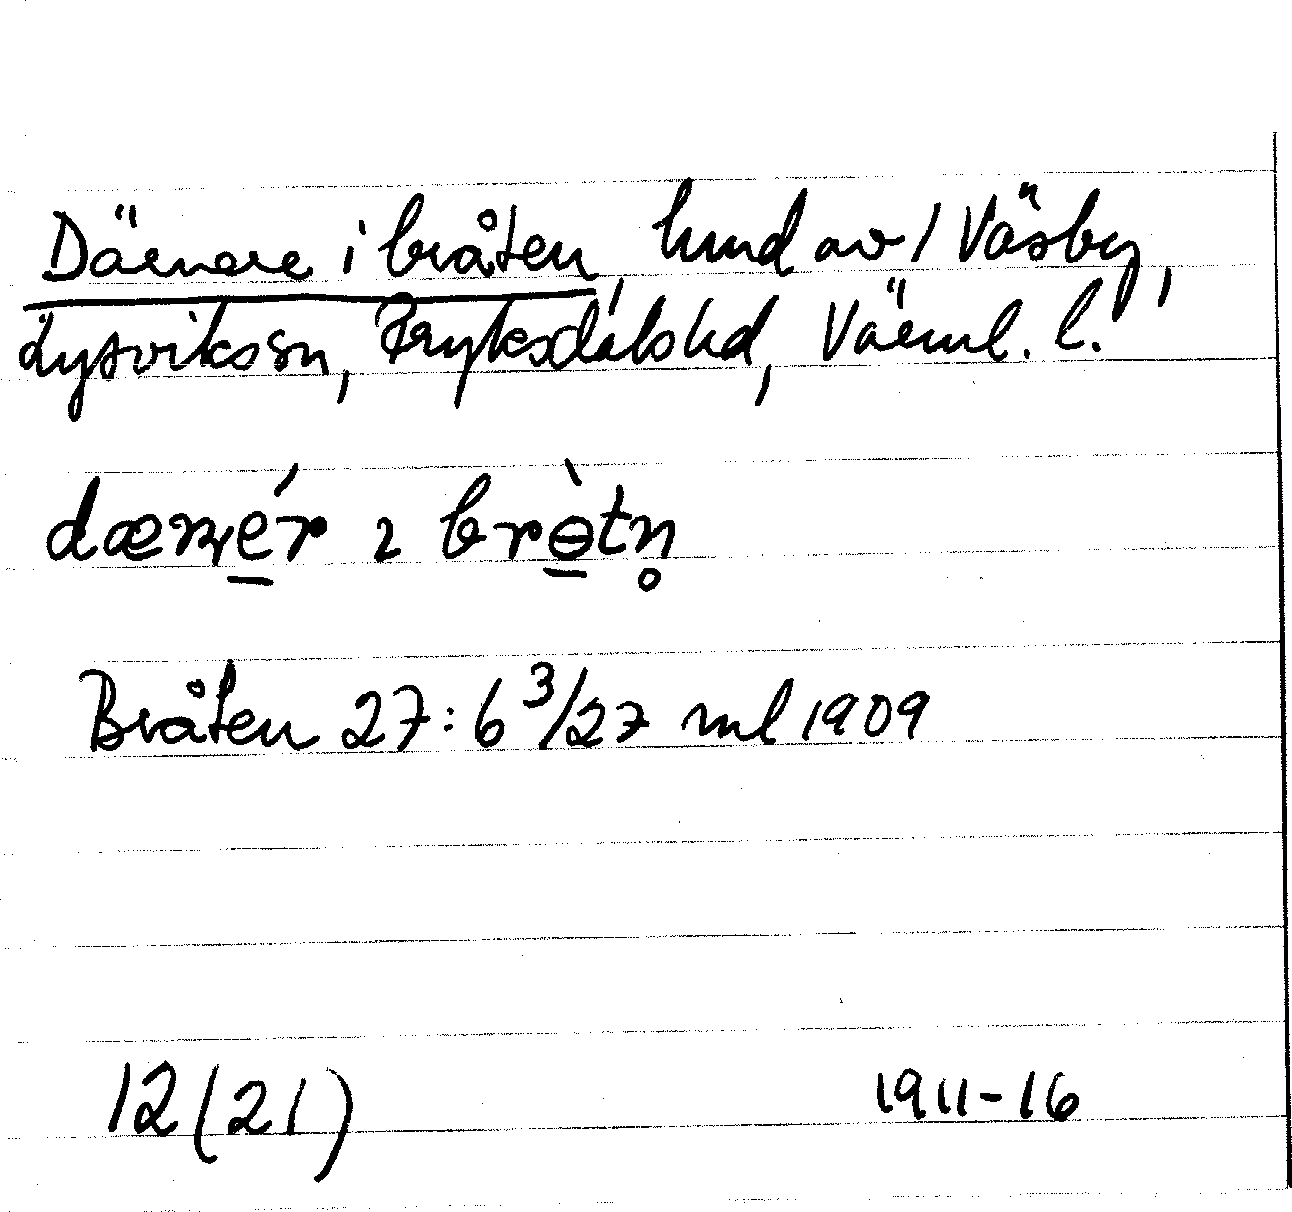 Därnere i bråten, hmd av 1 Väsby,
Lysvikssn, Fryksdalshd, Värml. l.
dærnér ɩ brɵ̀tn̥
Bråten 27:6 3/27 ml 1909
12(21) 1911-16